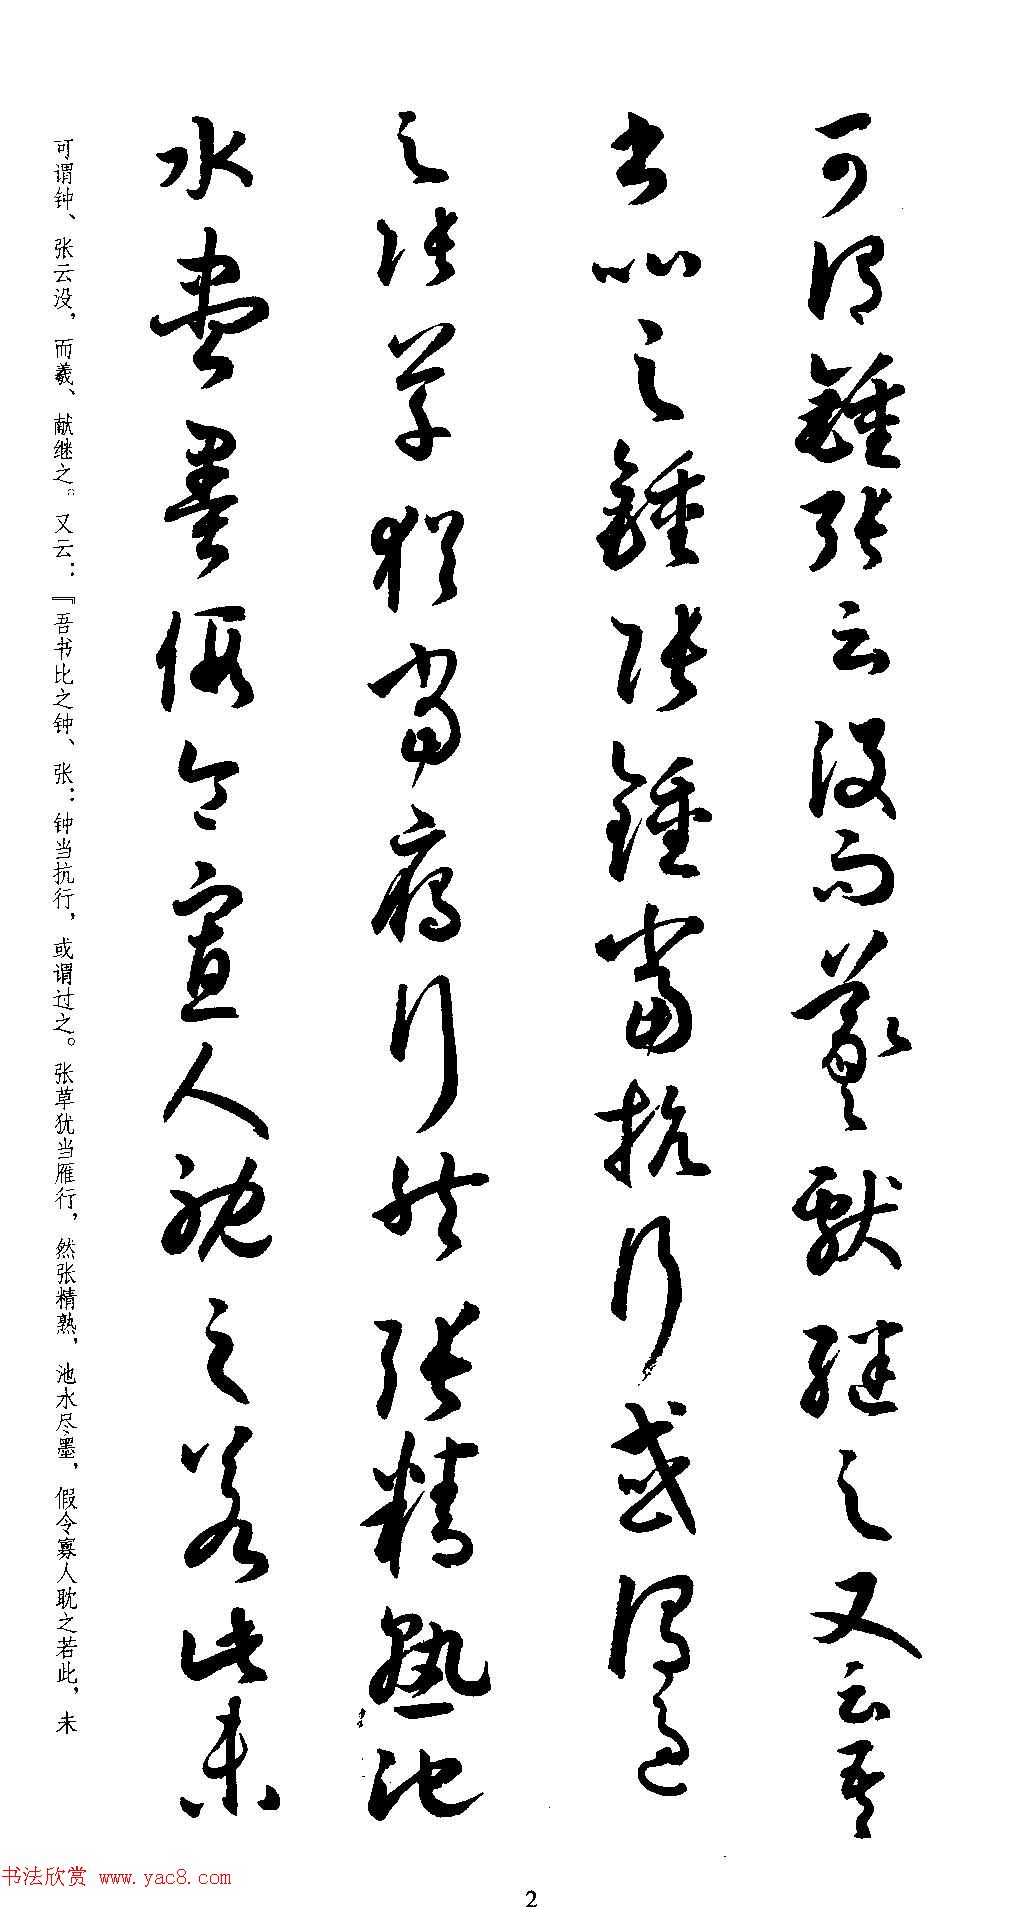 可謂鍾張云没而羲獻繼之又云吾
書比之鍾張鍾當抗行或謂過
之張草猶當鴈行然張精熟池
水盡墨假令寡人耽之若此未
可谓钟、张云没，而羲、献继之。又云：『吾书比之钟、张：钟当抗行，或谓过之。张草犹当雁行，然张精熟，池水尽墨，假令寡人耽之若此，未
书法欣赏 www.yac8.com
2